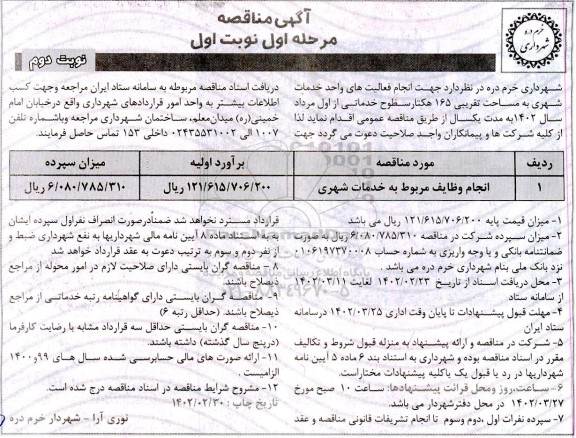 آگهی مناقصه
مرحله اول نوبت اول
نوبت دوم
خرم دره
شهرداری
شهرداری خرم دره در نظردارد جهت انجام فعالیت های واحد خدمات
شهری به مساحت تقریبی ۱۶۵ هکتارسطوح خدماتی از اول مرداد
سال ۱۴۰۲به مدت یکسال از طریق مناقصه عمومی اقدام نماید لذا
از کلیه شرکت ها و پیمانکاران واجد صلاحیت دعوت می گردد جهت
دریافت اسناد مناقصه مربوطه به سامانه ستاد ایران مراجعه وجهت کسب
اطلاعات بیشتر به واحد امور قراردادهای شهرداری واقع درخیابان امام
خمینی(ره) میدان معلم، ساختمان شهرداری مراجعه ویاشماره تلفن
۱۰۰۷ الی ۰۲۴۳۵۵۳۱۰۰۲ داخلی ۱۵۳ تماس حاصل فرمایند.
ردیف مورد مناقصه برآورد اولیه میزان سپرده
۱ انجام وظایف مربوط به خدمات شهری ۱۲۱/۶۱۵/۷۰۶/۲۰۰ ریال ۶/۰۸۰/۷۸۵/۳۱۰ ریال
۱- میزان قیمت پایه ۱۲۱/۶۱۵/۷۰۶/۲۰۰ ریال می باشد
۲- میزان سپرده شرکت در مناقصه ۶/۰۸۰/۷۸۵/۳۱۰ ریال به صورت
ضمانتنامه بانکی و یا وجه واریزی به شماره حساب ۰۱۰۶۱۹۷۳۷۰۰۰۸
نزد بانک ملی بنام شهرداری خرم دره می باشد .
۳- محل دریافت اسناد از تاریخ ۱۴۰۲/۰۲/۲۳ لغایت ۱۴۰۲/۰۳/۱۱
از سامانه ستاد
۴- مهلت قبول پیشنهادات تا پایان وقت اداری ۱۴۰۲/۰۳/۲۵ درسامانه
ستاد ایران
۵- شرکت در مناقصه و ارائه پیشنهاد به منزله قبول شروط و تکالیف
مقرر در اسناد مناقصه بوده و شهرداری به استناد بند ۶ ماده ۵ آیین نامه
شهرداریها در رد یا قبول یک یاکلیه پیشنهادات مختاراست.
۶- ساعت،روز ومحل قرائت پیشنهادها: ساعت ۱۰ صبح مورخ
۱۴۰۲/۰۳/۲۷ در محل دفترشهردار می باشد.
۷- سپرده نفرات اول ،دوم وسوم تا انجام تشریفات قانونی مناقصه و عقد
قرارداد مسترد نخواهد شد ضمنأدرصورت انصراف نفراول سپرده ایشان
به به استناد ماده ۸ آیین نامه مالی شهرداریها به نفع شهرداری ضبط و
از نفر دوم و سوم به ترتیب دعوت به عقد قرارداد خواهد شد
۸- مناقصه گران بایستی دارای صلاحیت لازم در امور محوله از مراجع
ذیصلاح باشند.
۹- مناقصه گران بایستی دارای گواهینامه رتبه خدماتی از مراجع
ذیصلاح باشند. (حداقل رتبه ۶)
۱۰- مناقصه گران بایستی حداقل سه قرارداد مشابه با رضایت کارفرما
(درپنج سال گذشته) داشته باشند.
۱۱- ارائه صورت های مالی حسابرسی شده سال های ۹۹و۱۴۰۰
الزامیست .
۱۲- مشروح شرایط مناقصه در اسناد مناقصه درج شده است.
تاریخ چاپ : ۱۴۰۲/۰۲/۳۰
نوری آرا - شهردار خرم دره